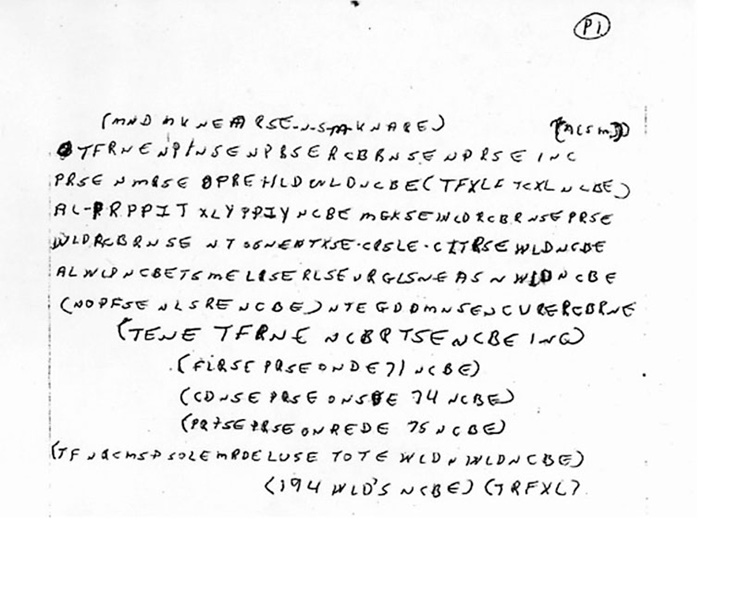 P1
(MND MKNEARSE-N-S-M-KNARE) (ACSM)
TFRNENPINSENPBSERCBBNSENPRSEINC
PRSENMRSEOPREHLDWLDNCBE(TFXLFTCXLNCBE)
AL-PRPPITXLYPPIYNCBEMGKSEWLDRCBRNSEPRSE
WLDRCBRNSENTSGNENTXSE-CRSLE-CITRSEWLDNCBE
ALWLPNCBETSMELRSERLSEURGLSNEASNWLDNCBE
(NOPFSENLSRENCBE)NTEGDDMNSENCURERCBRNE
(TENETFRNENCBRTSENCBEINC)
(FLRSEPRSEONDE71NCBE)
(CDNSEPRSEONSDE74NCBE)
(PRTSEPRSEONREDE75NCBE)
(TFNRCMSPSOLEMRDELUSETOTEWLDNWLDNCBE)
(194WLD'SNCBE)(TRFXL)